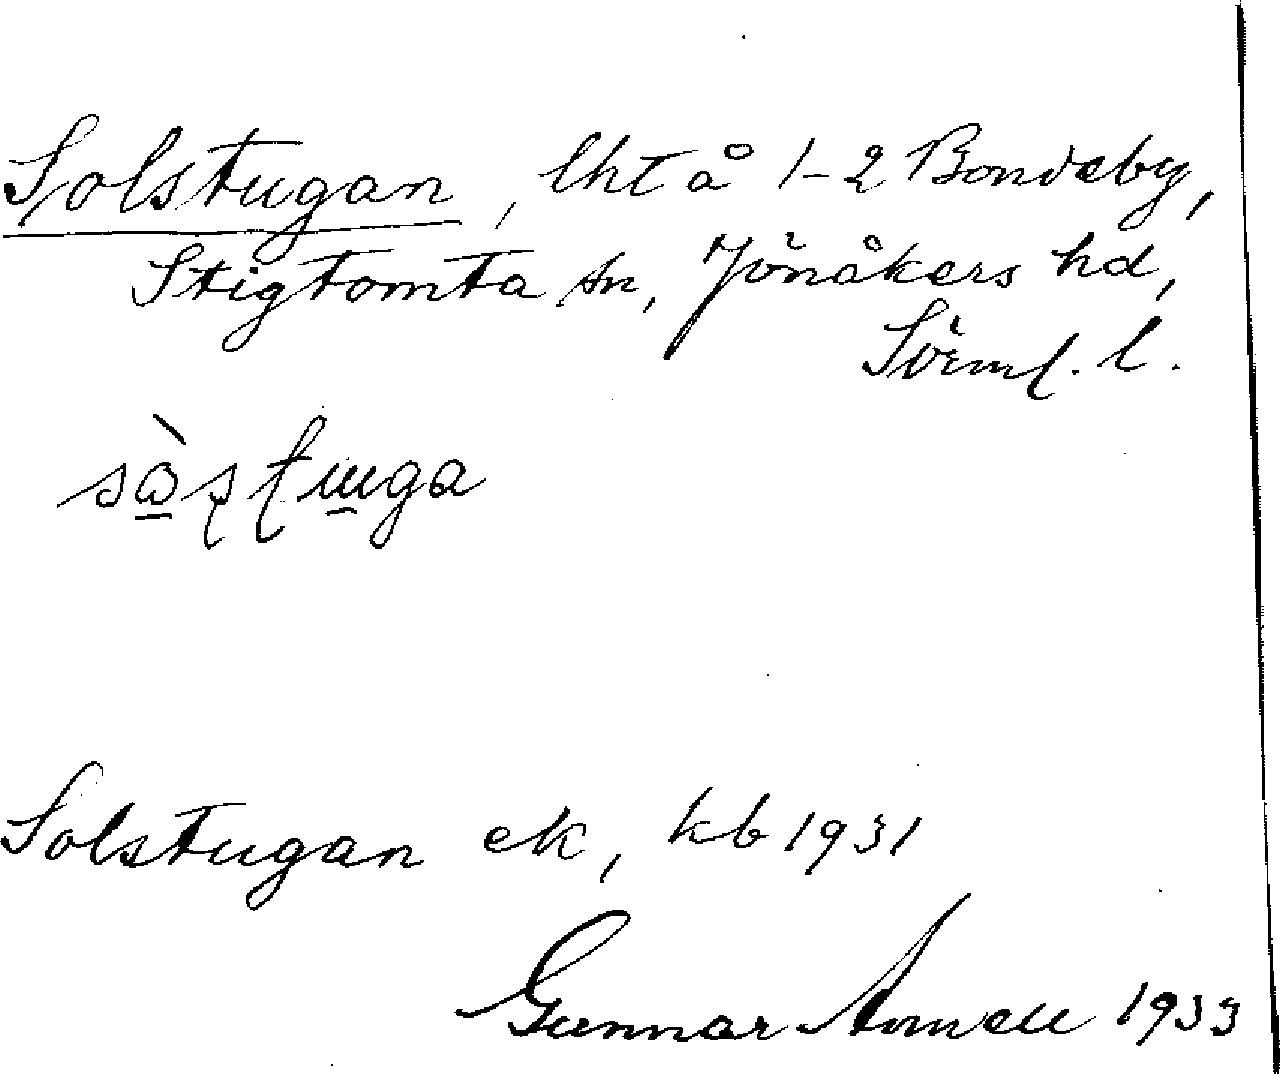 Solstugan, lht å 1-2 Bondeby,
Stigtomta sn, Jönåkers hd,
Sörml. l.
Solstugan ek, kb 1931
Gunnar 1933